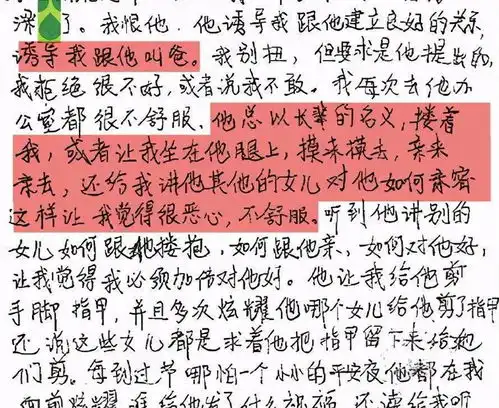 深了。我恨他。他诱导我跟他建立良好的关系,
诱导我跟他叫爸。我别扭,但要求是他提出的,
我拒绝很不好,或者说我不敢。我每次去他办
公室都很不舒服、他总以长辈的名义,搂着
我,或者让我坐在他腿上,摸来摸去,亲来
亲去,还给我讲他其他的女儿对他如何亲密
这样让我觉得很恶心,不舒服。听到他讲别的
女儿如何跟他搂抱,如何跟他亲、如何对他好,
让我觉得我必须加倍对他好。他让我给他剪
手脚指甲,并且多次炫耀他哪个女儿给他剪了指甲
还说这些女儿都是求着他把指甲留下来给她
们剪。每到过节哪怕一个小小的平安夜他都在我
面前炫耀谁给他发了什么祝福,还读给我听